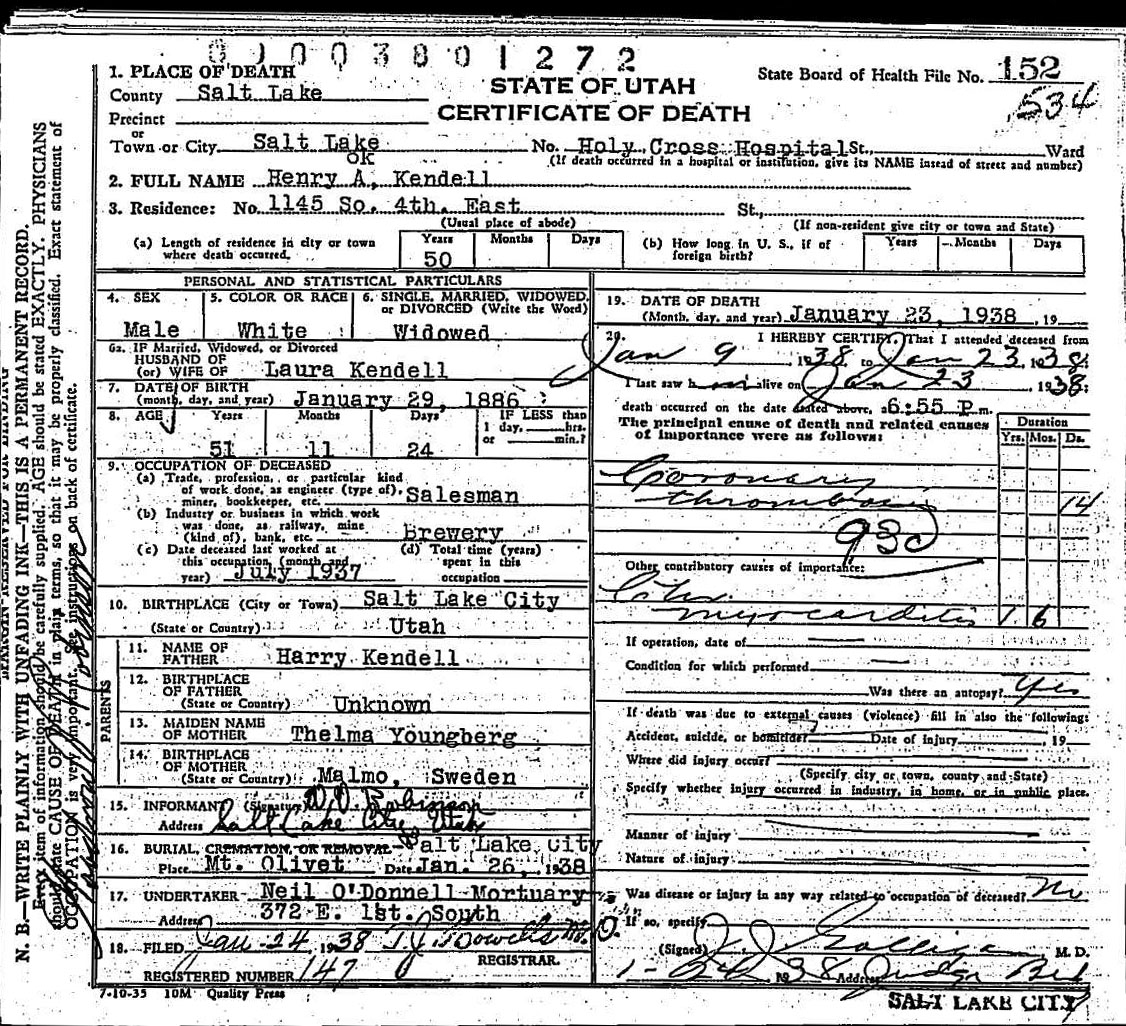 0 0 0 3 8 0 1 2 7 2
1. PLACE OF DEATH
County Salt Lake
Precinct
or
Town or City Salt Lake
OK
STATE OF UTAH
CERTIFICATE OF DEATH
State Board of Health File No. 152
534
No. Holy Cross Hospital St., Ward
(If death occurred in a hospital or institution, give its NAME instead of street and number)
2. FULL NAME Henry A. Kendell
3. Residence: No. 1145 So. 4th. East St.,
(Usual place of abode)
(If non-resident give city or town and State)
(a) Length of residence in city or town
where death occurred.
Years Months Days
50
(b) How long in U. S., if of
foreign birth?
Years Months Days
PERSONAL AND STATISTICAL PARTICULARS
4. SEX
Male
5. COLOR OR RACE
White
6. SINGLE, MARRIED, WIDOWED,
or DIVORCED (Write the Word)
Widowed
6a. IF Married, Widowed, or Divorced
HUSBAND OF
(or) WIFE OF Laura Kendell
7. DATE OF BIRTH
(month, day, and year) January 29, 1886
8. AGE Years Months Days
51 11 24
IF LESS than
1 day, hrs.
or min.?
9. OCCUPATION OF DECEASED
(a) Trade, profession, or particular kind
of work done, as engineer (type of),
miner, bookkeeper, etc. Salesman
(b) Industry or business in which work
was done, as railway, mine
(kind of), bank, etc. Brewery
(c) Date deceased last worked at
this occupation (month and
year) July 1937
(d) Total time (years)
spent in this
occupation
10. BIRTHPLACE (City or Town) Salt Lake City
(State or Country) Utah
PARENTS
11. NAME OF
FATHER Harry Kendell
12. BIRTHPLACE
OF FATHER
(State or Country) Unknown
13. MAIDEN NAME
OF MOTHER Thelma Youngberg
14. BIRTHPLACE
OF MOTHER
(State or Country) Malmo, Sweden
15. INFORMANT (Signature) Robinson
Address Salt Lake City Utah
16. BURIAL, CREMATION, OR REMOVAL Salt Lake City
Place Mt. Olivet Date Jan. 26, 1938
17. UNDERTAKER Neil O'Donnell Mortuary
Address 372 E. 1st. South
18. FILED Jan 24 1938
REGISTRAR.
REGISTERED NUMBER 147
7-10-35 10M Quality Press
19. DATE OF DEATH
(Month, day, and year) January 23, 1938, 19
20. I HEREBY CERTIFY, That I attended deceased from
Jan 9 1938 to Jan 23 1938
I last saw him alive on Jan 23, 1938
death occurred on the date stated above, a 6:55 P.m.
The principal cause of death and related causes
of importance were as follows:
Duration
Yrs. Mos. Ds.
Coronary
thrombosis 14
Other contributory causes of importance:
myocarditis 1 6
If operation, date of
Condition for which performed
Was there an autopsy? Yes
If death was due to external causes (violence) fill in also the following:
Accident, suicide, or homicide? Date of injury , 19
Where did injury occur?
(Specify city or town, county and State)
Specify whether injury occurred in industry, in home, or in public place.
Manner of injury
Nature of injury
Was disease or injury in any way related to occupation of deceased? No
If so, specify
(Signed) M. D.
1-24 1938 Address Judge Bld
SALT LAKE CITY
N. B.—WRITE PLAINLY WITH UNFADING INK—THIS IS A PERMANENT RECORD.
Every item of information should be carefully supplied. AGE should be stated EXACTLY. PHYSICIANS
should state CAUSE OF DEATH in plain terms, so that it may be properly classified. Exact statement of
OCCUPATION is very important. See instructions on back of certificate.